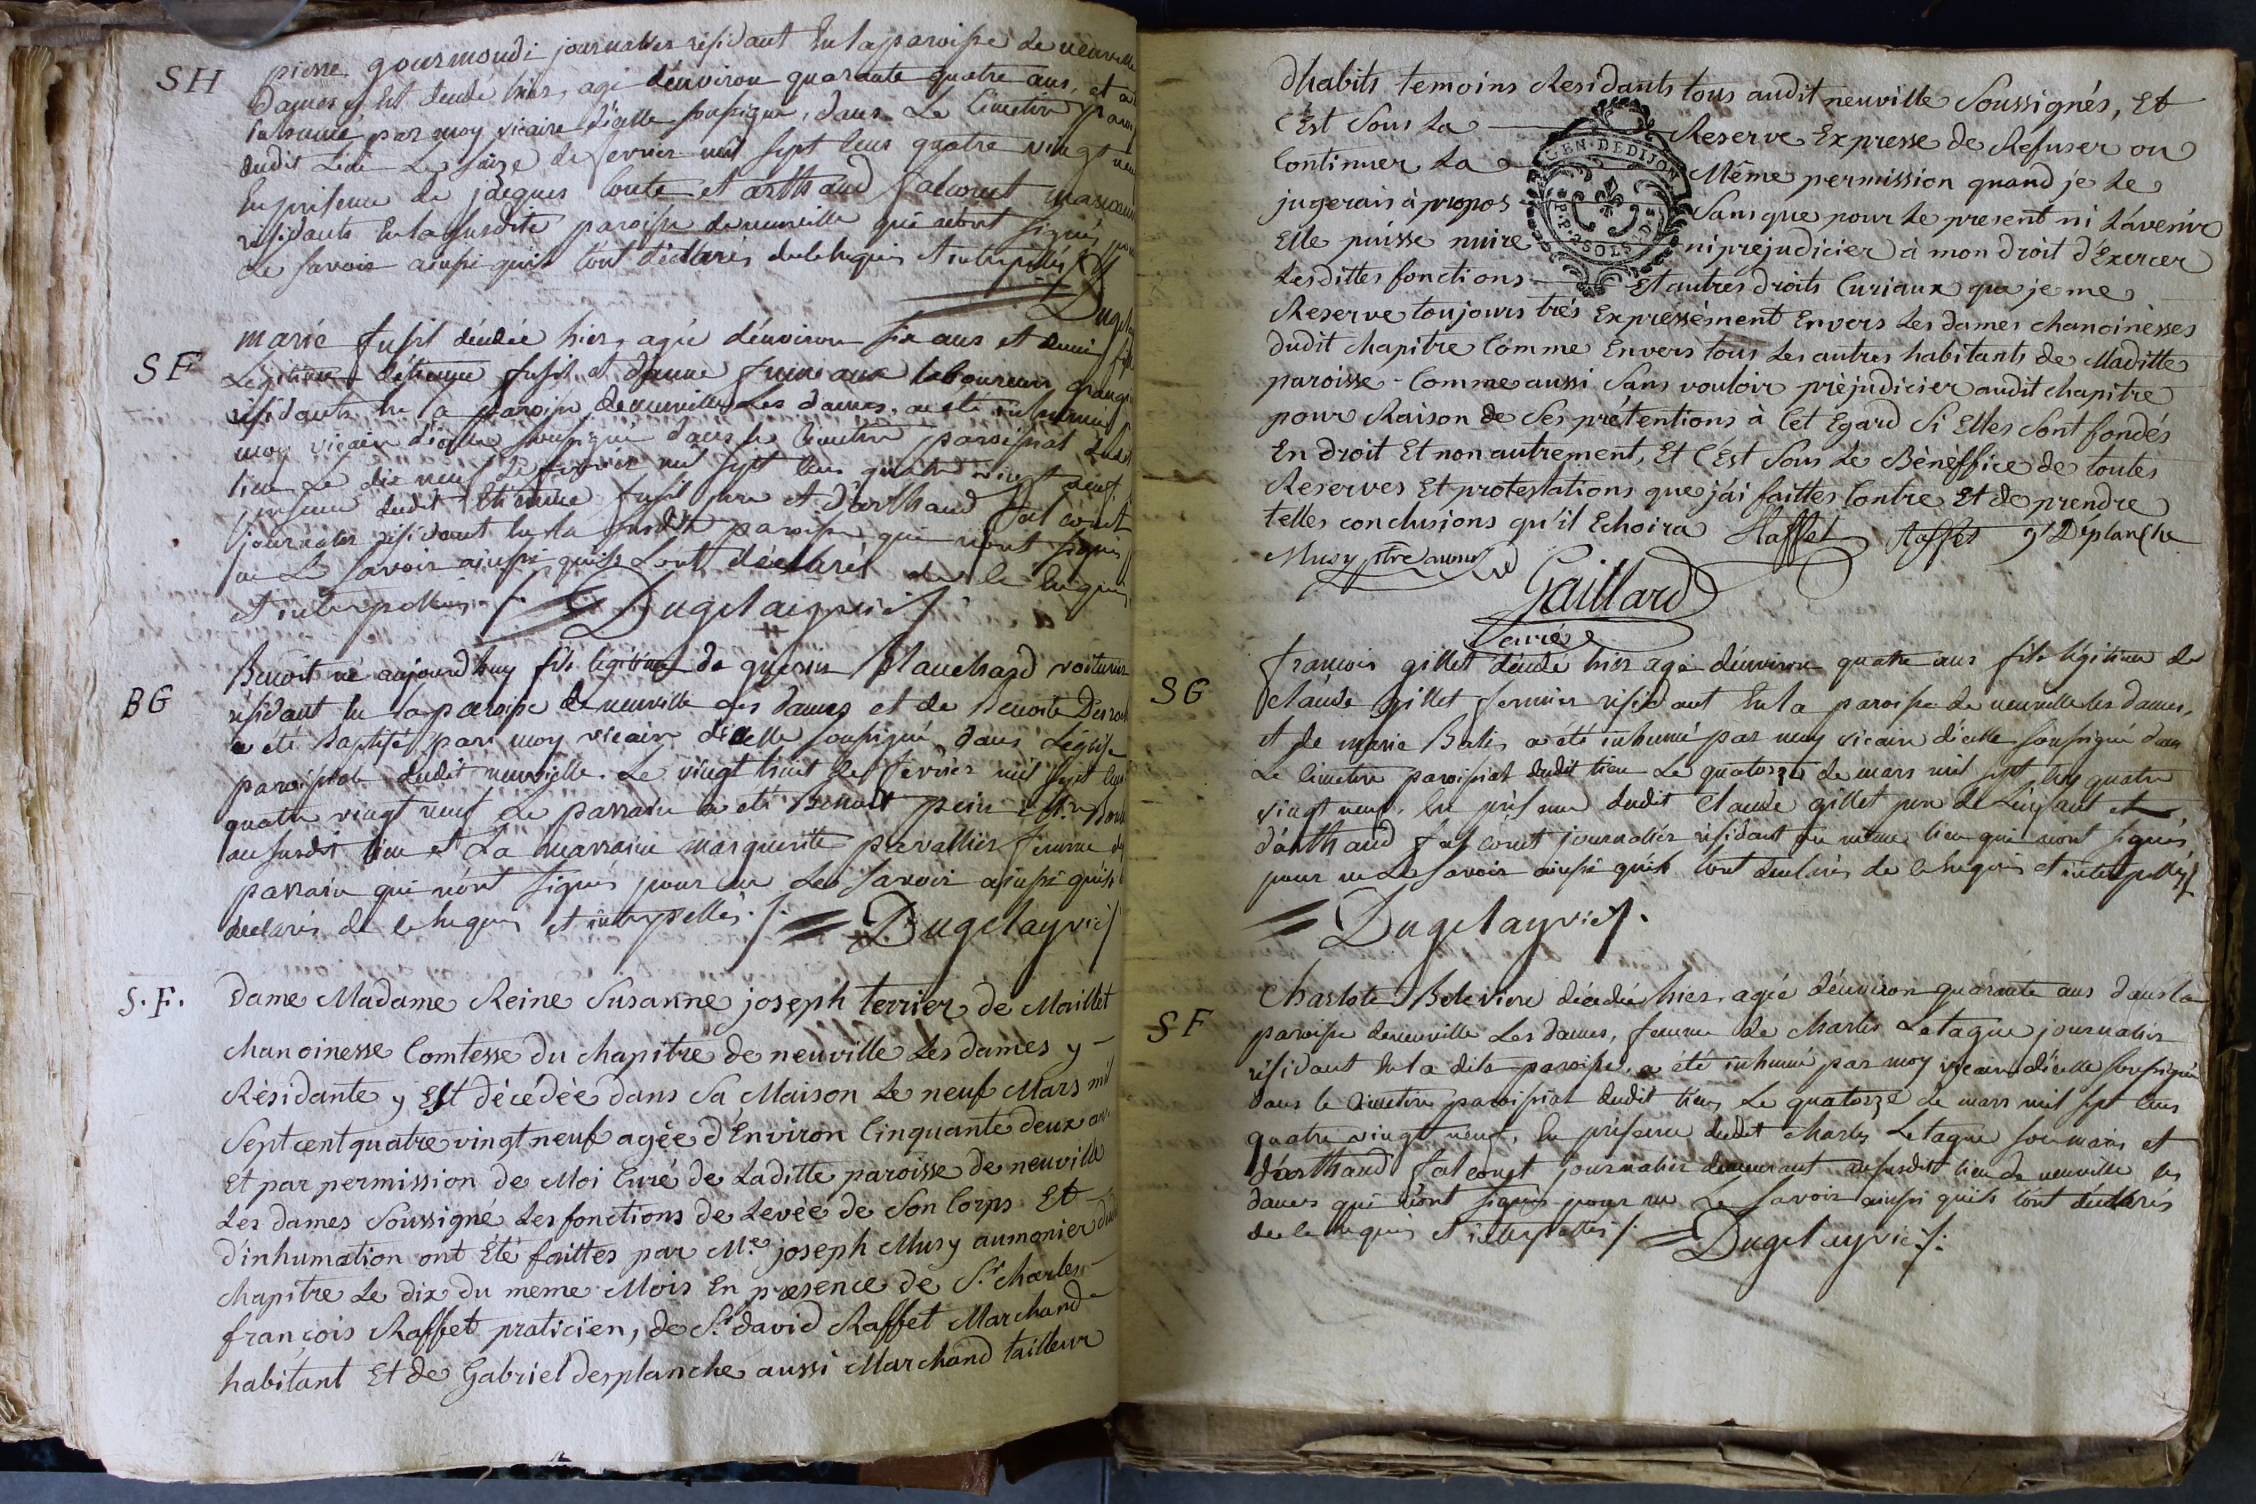 SH
pierre gourmondi journallier résidant En la paroisse de neuville
Dames y Est décédé hier, agé d'environ quarante quatre ans, et a
Inhumé par moy vicaire d'icelle soussigné, dans Le Cimetiere
dudit Lieu Le saize de fevrier mil sept Cens quatre vingt neuf
En présence de jacques Conte et arthaud falconet
résidants En la susdite paroisse de neuville qui n'ont signés pour
ne savoir ainsi qu'ils l'ont déclarés de ce Requis et interpellés
Dugelay
SF
marie fusil décédée hier, agée d'environ six ans et demi fille
Légitime d'étienne fusil et d'anne Laboureurs
résidants En la paroisse de neuville Les dames, a été inhumée
moy vicaire d'icelle soussigné dans le Cimetiere paroissial dudit
lieu Le dix neuf de fevrier mil sept Cens quatre vingt neuf
présence dudit Etienne fusil pere et d'arthaud falconet
journalier résidant En la susdite paroisse qui n'ont signés
ne Le savoir ainsi qu'ils L'ont déclarés de ce Requis
et interpellés ./. Dugelay vic./.
BG
Benoit né aujourd'huy fils légitime de Blanchard voiturier
résidant En la paroisse de neuville Les dames et de Benoite
a été Baptisé par moy vicaire d'icelle soussigné dans L'église
paroissiale dudit neuville. Le vingt huit de fevrier mil sept Cens
quatre vingt neuf Le parrain a été Benoit
au susdit lieu et La marraine marguerite femme du
parrain qui n'ont signés pour ne Le savoir ainsi qu'ils
déclarés de ce Requis et interpellés ./. Dugelay vic./
S.F.
Dame Madame Reine Susanne joseph terrier de Maillet
chanoinesse Comtesse du chapitre de neuville Les dames y
Résidante y Est décédée dans Sa Maison Le neuf Mars mil
Sept cent quatre vingt neuf agée d'Environ Cinquante deux an
Et par permission de Moi Curé de Laditte paroisse de neuville
Les dames Soussigné Les fonctions de Levée de Son Corps Et
d'inhumation ont Eté faittes par M.re joseph Musy aumonier du
chapitre Le dix du meme Mois En presence de S.r charles
françois Raffet praticien, de S.r david Raffet Marchand
habitant Et de Gabriel desplanche aussi Marchand tailleur
dhabits temoins Residants tous audit neuville Soussignés, Et
C'Est Sous La Reserve Expresse de Refuser ou
Continuer La Même permission quand je Le
jugerais à propos Sans que pour Le present ni L'avenir
Elle puisse nuire ni prejudicier à mon droit d'Exercer
Lesdittes fonctions Et autres droits Curiaux que je me
Reserve toujours trés Expressément Envers Les dames chanoinesses
dudit chapitre Comme Envers tous Les autres habitants de Maditte
paroisse - Comme aussi Sans vouloir préjudicier audit chapitre
pour Raison de Ses prétentions à Cet Egard Si Elles Sont fondés
En droit Et non autrement, Et C'Est Sous Le Bénéffice de toutes
Reserves Et protestations que j'ai faittes Contre Et de prendre
telles conclusions qu'il Echoira Raffet Raffet g Deplanche
Musy ptre aumo
Gaillard
Curé
GEN. DE DIJON
SG
francois gillet décédé hier agé d'environ quatre ans fils légitime de
claude gillet fermier résidant En la paroisse de neuville les dames,
et de marie Batis a été inhumé par moy vicaire d'icelle soussigné dans
Le Cimetiere paroissial dudit lieu Le quatorze de mars mil sept Cens quatre
vingt neuf, En présence dudit Claude gillet pere de L'enfant et
d'arthaud falconet journalier résidant au même lieu qui n'ont signés
pour ne Le savoir ainsi qu'ils l'ont déclarés de ce Requis et interpellés
Dugelay vic./.
SF
Charlote décédée hier, agée d'environ quarante ans dans la
paroisse de neuville Les dames, femme de charles Letague journalier
résidant En la dite paroisse, a été inhumé par moy vicaire d'icelle soussigné
dans le Cimetiere paroissial dudit lieu, Le quatorze de mars mil sept Cens
quatre vingt neuf, En présence dudit charles Letague son mari et
d'arthaud falconet journalier demeurant au susdit lieu de neuville les
dames qui n'ont signés pour ne Le savoir ainsi qu'ils l'ont déclarés
de ce Requis et interpellés ./. Dugelay vic./.